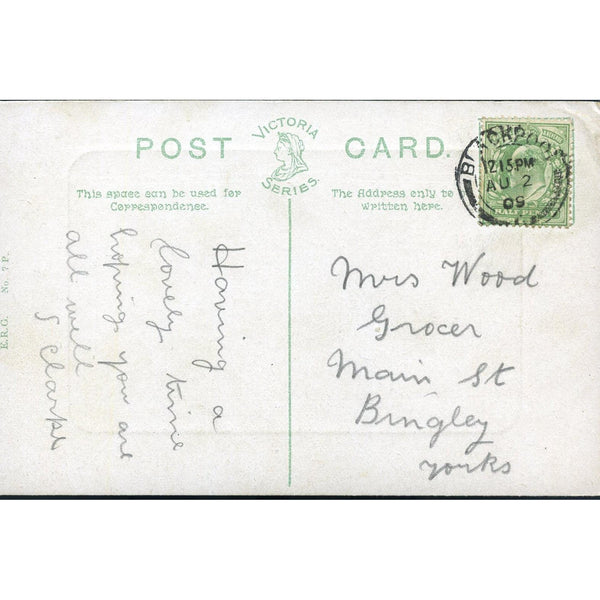 POST CARD.
VICTORIA
SERIES
This space can be used for
Correspondence.
The Address only to
be written here.
BLACKPOOL
12.15PM
AU 2
09
HALF PENNY
E.R.G. No. 7 P.
Having a
lovely time
hoping you are
all well
S Clarke
Mrs Wood
Grocer
Main St
Bingley
Yorks